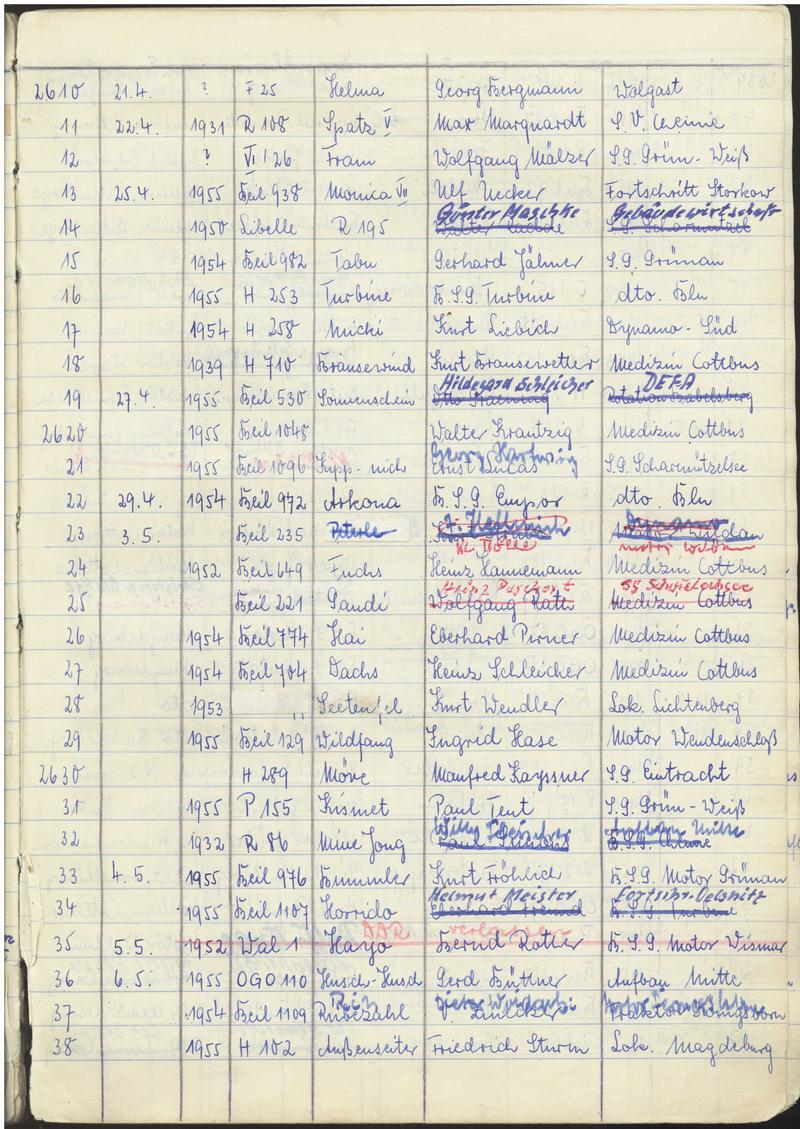 2610 21.4. ? F 25 Helma Georg Bergmann Wolgast
11 22.4. 1931 R 108 Spatz V Max Marquardt S.V. Cheimie
12 ? VI 126 Fram Wolfgang Mälzer S.G. Grün-Weiß
13 25.4. 1955 Beil 938 Monica VII Ulf Uecker Fortschritt Storkow
Günter Maschke Gebäudewirtschaft
14 1950 Libelle R 195 Walter S.G. Scharmützel
15 1954 Beil 982 Tabu Gerhard Jähner S.G. Grünau
16 1955 H 253 Turbine B.S.G. Turbine dto. Bln
17 1954 H 258 Mucki Kurt Liebich Dynamo-Süd
18 1939 H 710 Bräusewind Kurt Brausewetter Medizin Cottbus
Hildegard Schleicher DEFA
19 27.4 1955 Beil 530 Sonnenschein Otto Rotation Babelsberg
2620 1955 Beil 1048 Walter Krautzig Medizin Cottbus
Georg Hartwig
21 1955 Beil 1096 Kipp-mich Ernst Lucas S.G. Scharmützelsee
22 29.4. 1954 Beil 972 Arkona B.S.G. Empor dto. Bln
Dynamo
23 3.5. Beil 235 Peterle Motor Wildau
Motor Wildau
24 1952 Beil 649 Fuchs Heinz Hannemann Medizin Cottbus
Heinz SG Schwielochsee
25 Beil 221 Gaudi Wolfgang Rath Medizin Cottbus
26 1954 Beil 774 Hai Eberhard Pirner Medizin Cottbus
27 1954 Beil 704 Dachs Heinz Schleicher Medizin Cottbus
28 1953 Seeteufel Kurt Wendler Lok. Lichtenberg
29 1955 Beil 129 Wildfang Ingrid Hase Motor Wendenschloß
2630 H 289 Möve Manfred Kayssner S.G. Eintracht
31 1955 P 155 Kismet Paul Tent S.G. Grün-Weiß
Willy Fleischer Aufbau Mitte
32 1932 R 86 Mine Jong Paul B.S.G.
33 4.5. 1955 Beil 976 Bummler Kurt Fröhlich B.S.G. Motor Grünau
Helmut Meister Fortschr. Oelsnitz
34 1955 Beil 1107 Horrido Eberhard Freund B.S.G. Turbine
DDR verlassen
35 5.5. 1952 Wal 1 Hayo Bernd Rotter B.S.G. Motor Wismar
36 6.5. 1955 OGO 110 Husch-Husch Gerd Büttner Aufbau Mitte
37 1954 Beil 1109 Rübezahl Traktor
38 1955 H 102 Außenseiter Friedrich Sturm Lok. Magdeburg